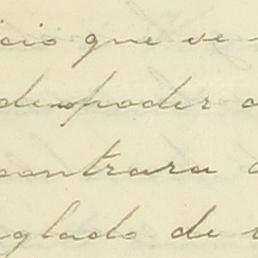 cio que se
de poder
contrara
glado de